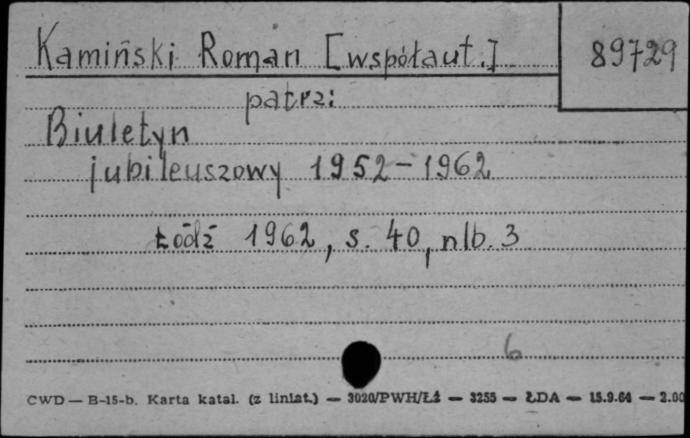 Kamiński Roman [współaut.] 89729
patrz:
Biuletyn
jubileuszowy 1952-1962
Łódź 1962, s. 40, nlb. 3
6
CWD — B-15-b. Karta katal. (z liniat.) — 3020/PWH/Łż — 3255 — ŁDA — 15.9.64 — 2.00